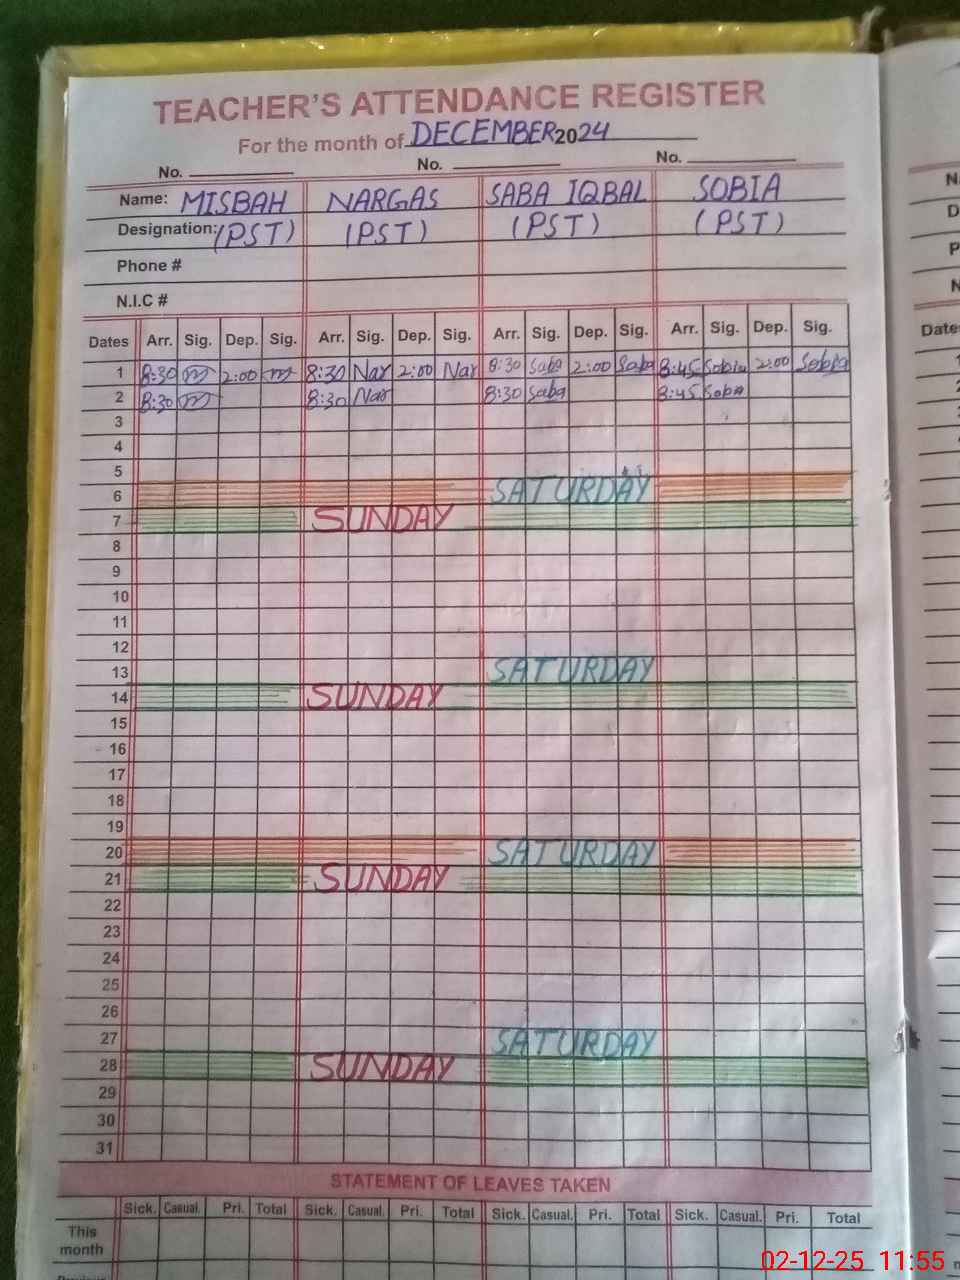 TEACHER'S ATTENDANCE REGISTER
For the month of DECEMBER 2024
No. No. No.
Name: MISBAH NARGAS SABA IQBAL SOBIA
Designation: (PST) (PST) (PST) (PST)
Phone #
N.I.C #
Dates Arr. Sig. Dep. Sig. Arr. Sig. Dep. Sig. Arr. Sig. Dep. Sig. Arr. Sig. Dep. Sig.
1 8:30 m 2:00 m 8:30 Nar 2:00 Nar 8:30 Saba 2:00 Saba 8:45 Sobia 2:00 Sobia
2 8:30 m 8:30 Nar 8:30 Saba 8:45 Sobia
3
4
5
6 SATURDAY
7 SUNDAY
8
9
10
11
12
13 SATURDAY
14 SUNDAY
15
16
17
18
19
20 SATURDAY
21 SUNDAY
22
23
24
25
26
27 SATURDAY
28 SUNDAY
29
30
31
STATEMENT OF LEAVES TAKEN
Sick. Casual. Pri. Total Sick. Casual. Pri. Total Sick. Casual. Pri. Total Sick. Casual. Pri. Total
This
month
02-12-25 11:55